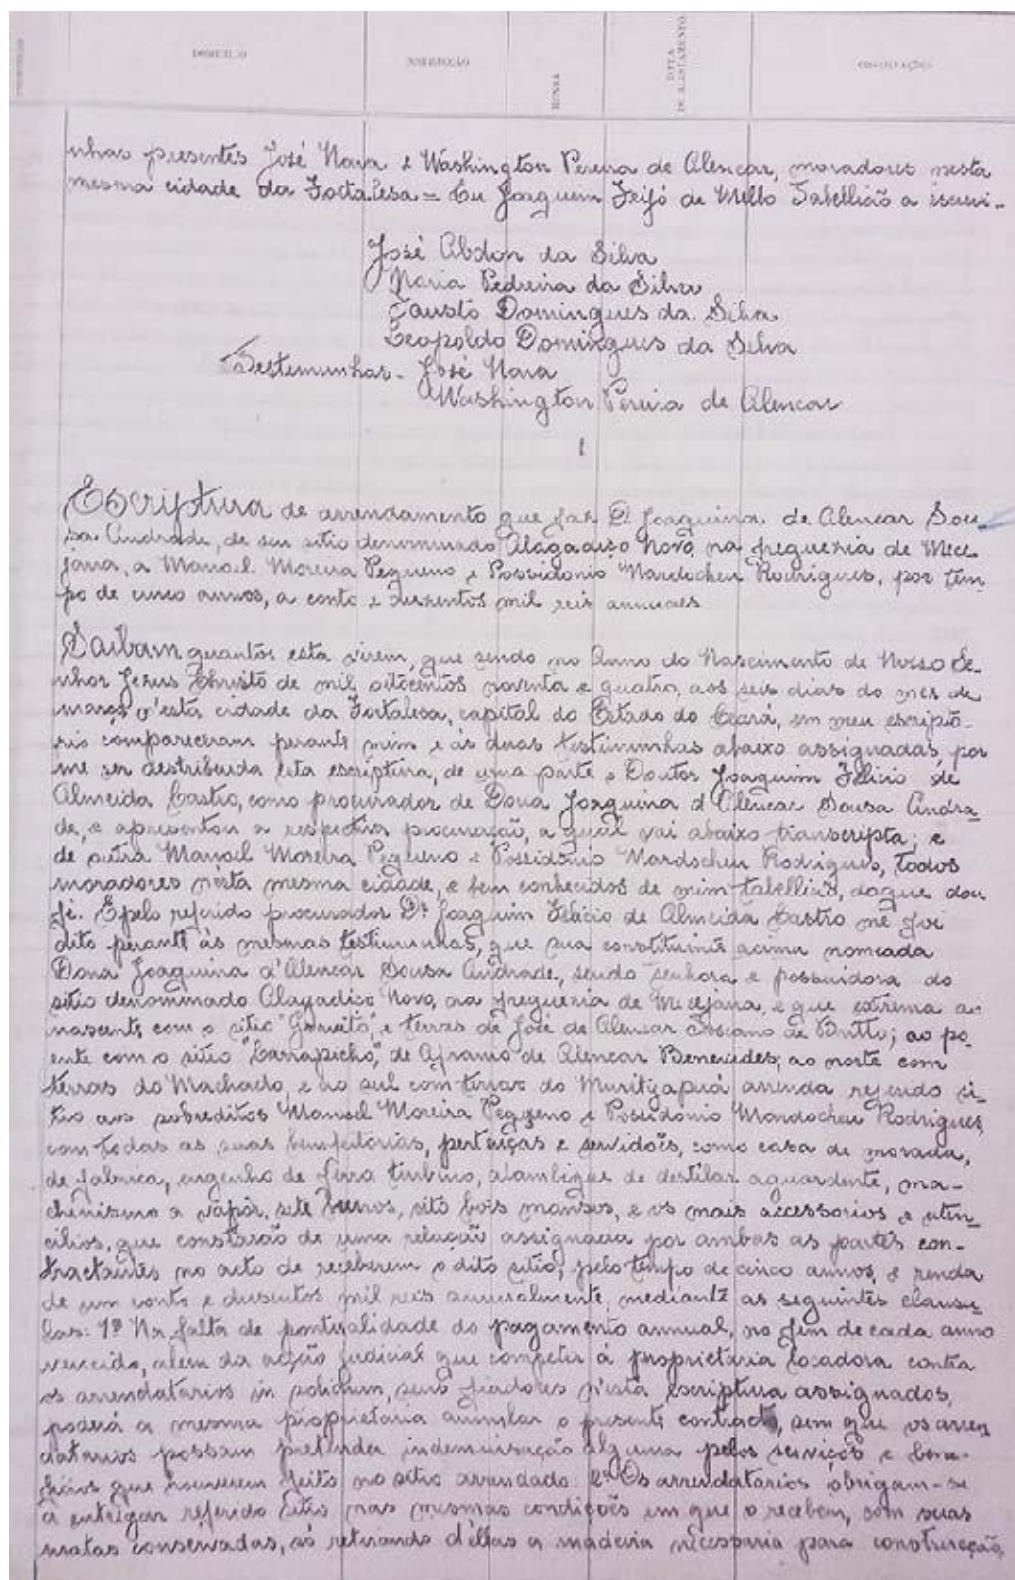 DOMICILIO
OBSERVAÇÕES
nhas presentes José Nava e Washington Pereira de Alencar, moradores nesta
mesma cidade da Fortalesa = Eu Joaquim Feijó de Mello Tabellião a escrevi..
José Abdon da Silva
Maria Pedreira da Silva
Fausto Domingues da Silva
Leopoldo Domingues da Silva
Testemunhas - José Nava
Washington Pereira de Alencar
Escriptura de arrendamento que faz D. Joaquina de Alencar Sou-
sa Andrade, de seu sitio denominado Alagadiço Novo, na freguezia de Mece-
jana, a Manoel Moreira Pequeno e Possidonio Mardocheu Rodrigues, por tem-
po de cinco annos, a conto e dusentos mil reis annuaes
Saibam quantos esta virem, que sendo no Anno do Nascimento de Nosso Se-
nhor Jesus Christo de mil oitocentos noventa e quatro, aos seis dias do mes de
março n'esta cidade da Fortalesa, capital do Estado do Ceará, em meu escripto-
rio compareceram perante mim e ás duas testimunhas abaixo assignadas, por
me ser destribuida esta escriptura, de uma parte o Doutor Joaquim Felicio de
Almeida Castro, como procurador de Dona Joaquina d'Alencar Sousa Andra-
de, e apresentou a respectiva procuração, a qual vai abaixo transcripta; e
de outra Manoel Moreira Pequeno e Possidonio Mardocheu Rodrigues, todos
moradores nesta mesma cidade, e bem conhecidos de mim tabellião, do que dou
fé. E pelo referido procurador Dr. Joaquim Felicio de Almeida Castro me foi
dito perante ás mesmas testimunhas, que sua constituinte acima nomeada
Dona Joaquina d'Alencar Sousa Andrade, sendo senhora e possuidora do
sitio denominado Alagadiço Novo, na freguezia de Mecejana, e que extrema ao
nascente com o sitio e terras de José de Alencar de Britto; ao po-
ente com o sitio "Carrapicho," de Aframo de Alencar Benevides; ao norte com
terras do Machado, e ao sul com terras do Murityapuá arrenda referido si-
tio aos sobreditos Manoel Moreira Pequeno e Possidonio Mardocheu Rodrigues,
com todas as suas bemfeitorias, pertenças e servidões, como casa de morada,
de fabrica, engenho de ferro turbino, alambique de destilar aguardente, ma-
chinismo a vapor, sete burros, oito bois mansos, e os mais accessorios e uten-
cilios, que constarão de uma relação assignada por ambas as partes con-
tractantes no acto de receberem o dito sitio; pelo tempo de cinco annos, e renda
de um conto e dusentos mil reis annualmente, mediante as seguintes clausu-
las: 1ª Na falta de pontualidade do pagamento annual, no fim de cada anno
vencido, alem da acção judicial que competir á proprietaria locadora contra
os arrendatarios in solidum, seus fiadores n'esta escriptura assignados,
poderá a mesma proprietaria annular o presente contracto, sem que os arren
datarios possam pretender indemnisação alguma pelos serviços e bene-
ficios que houverem feito no sitio arrendado: 2ª Os arrendatarios obrigam-se
a entregar referido sitio nas mesmas condições em que o recebem, com suas
matas conservadas, só retirando d'ellas a madeira necessaria para construcção,